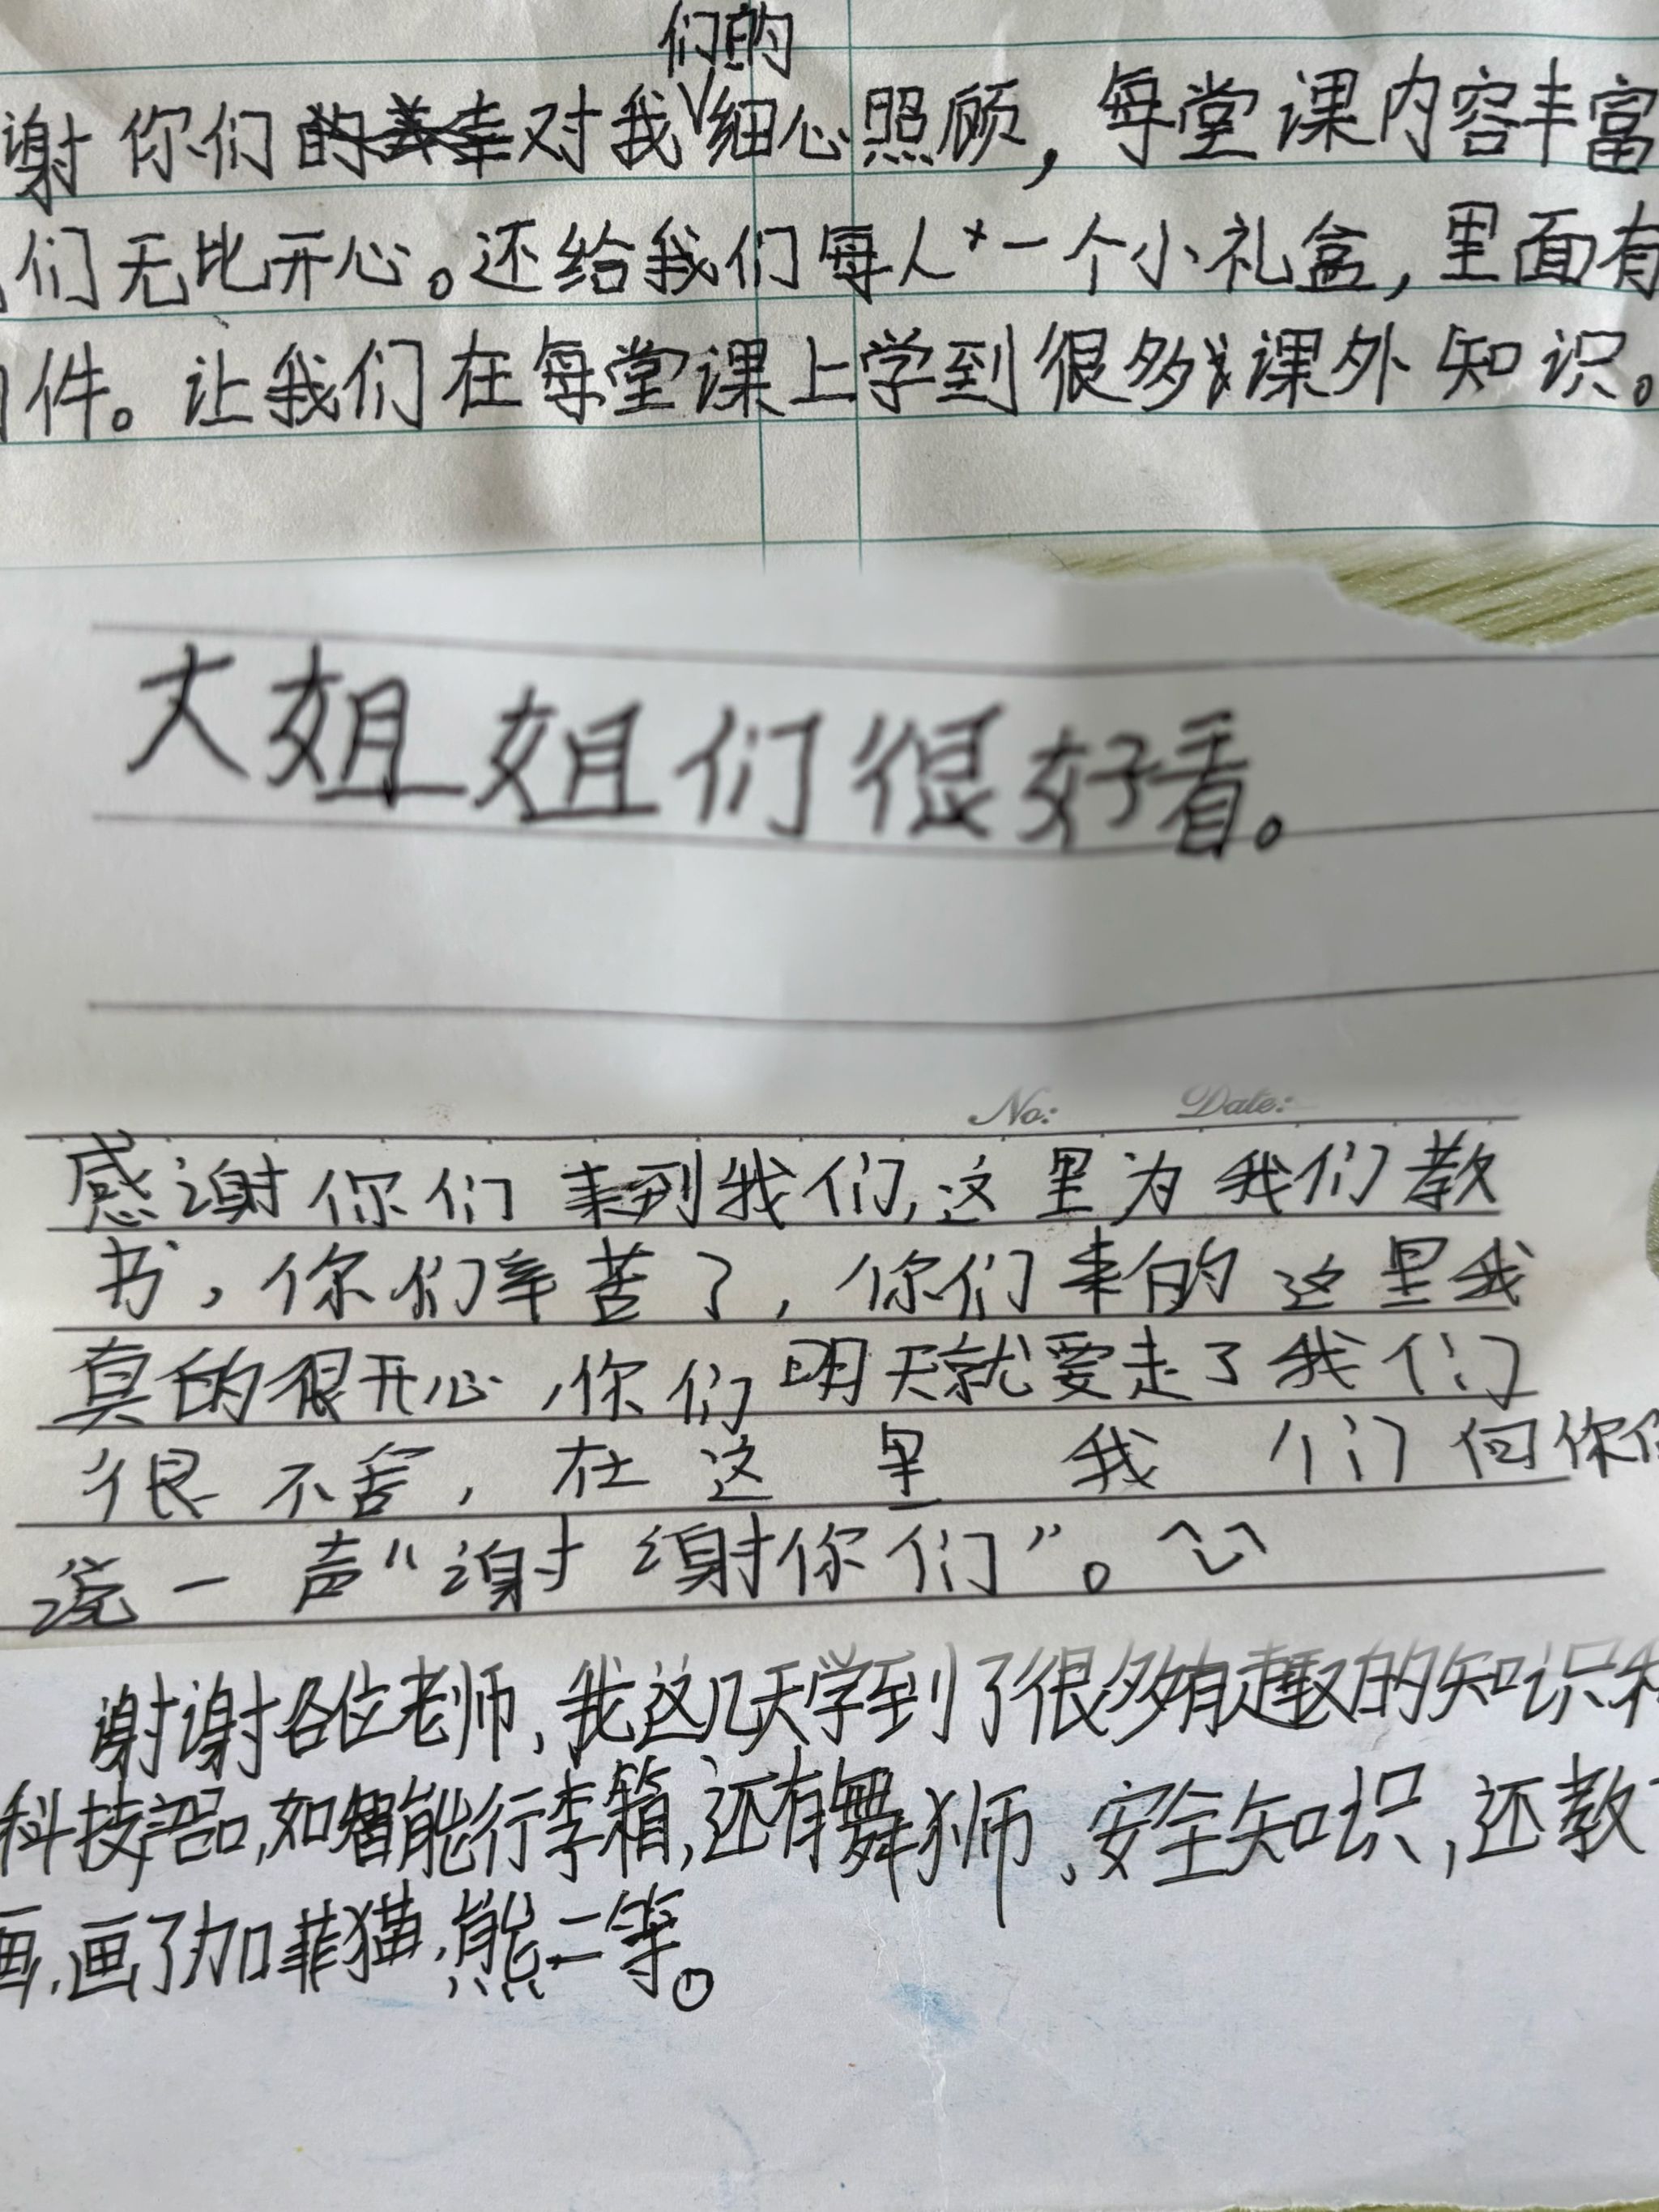 们的
谢你们对我细心照顾，每堂课内容丰富
们无比开心。还给我们每人一个小礼盒，里面有
件。让我们在每堂课上学到很多课外知识。
大姐姐们很好看。
No: Date:
感谢你们来到我们，这里为我们教
书，你们辛苦了，你们来的这里我
真的很开心，你们明天就要走了我们
很不舍，在这里我们向你们
说一声“谢谢你们”。
谢谢各位老师，我这几天学到了很多有趣的知识和
科技产品，如智能行李箱，还有舞狮、安全知识，还教
画，画了加菲猫，熊二等。